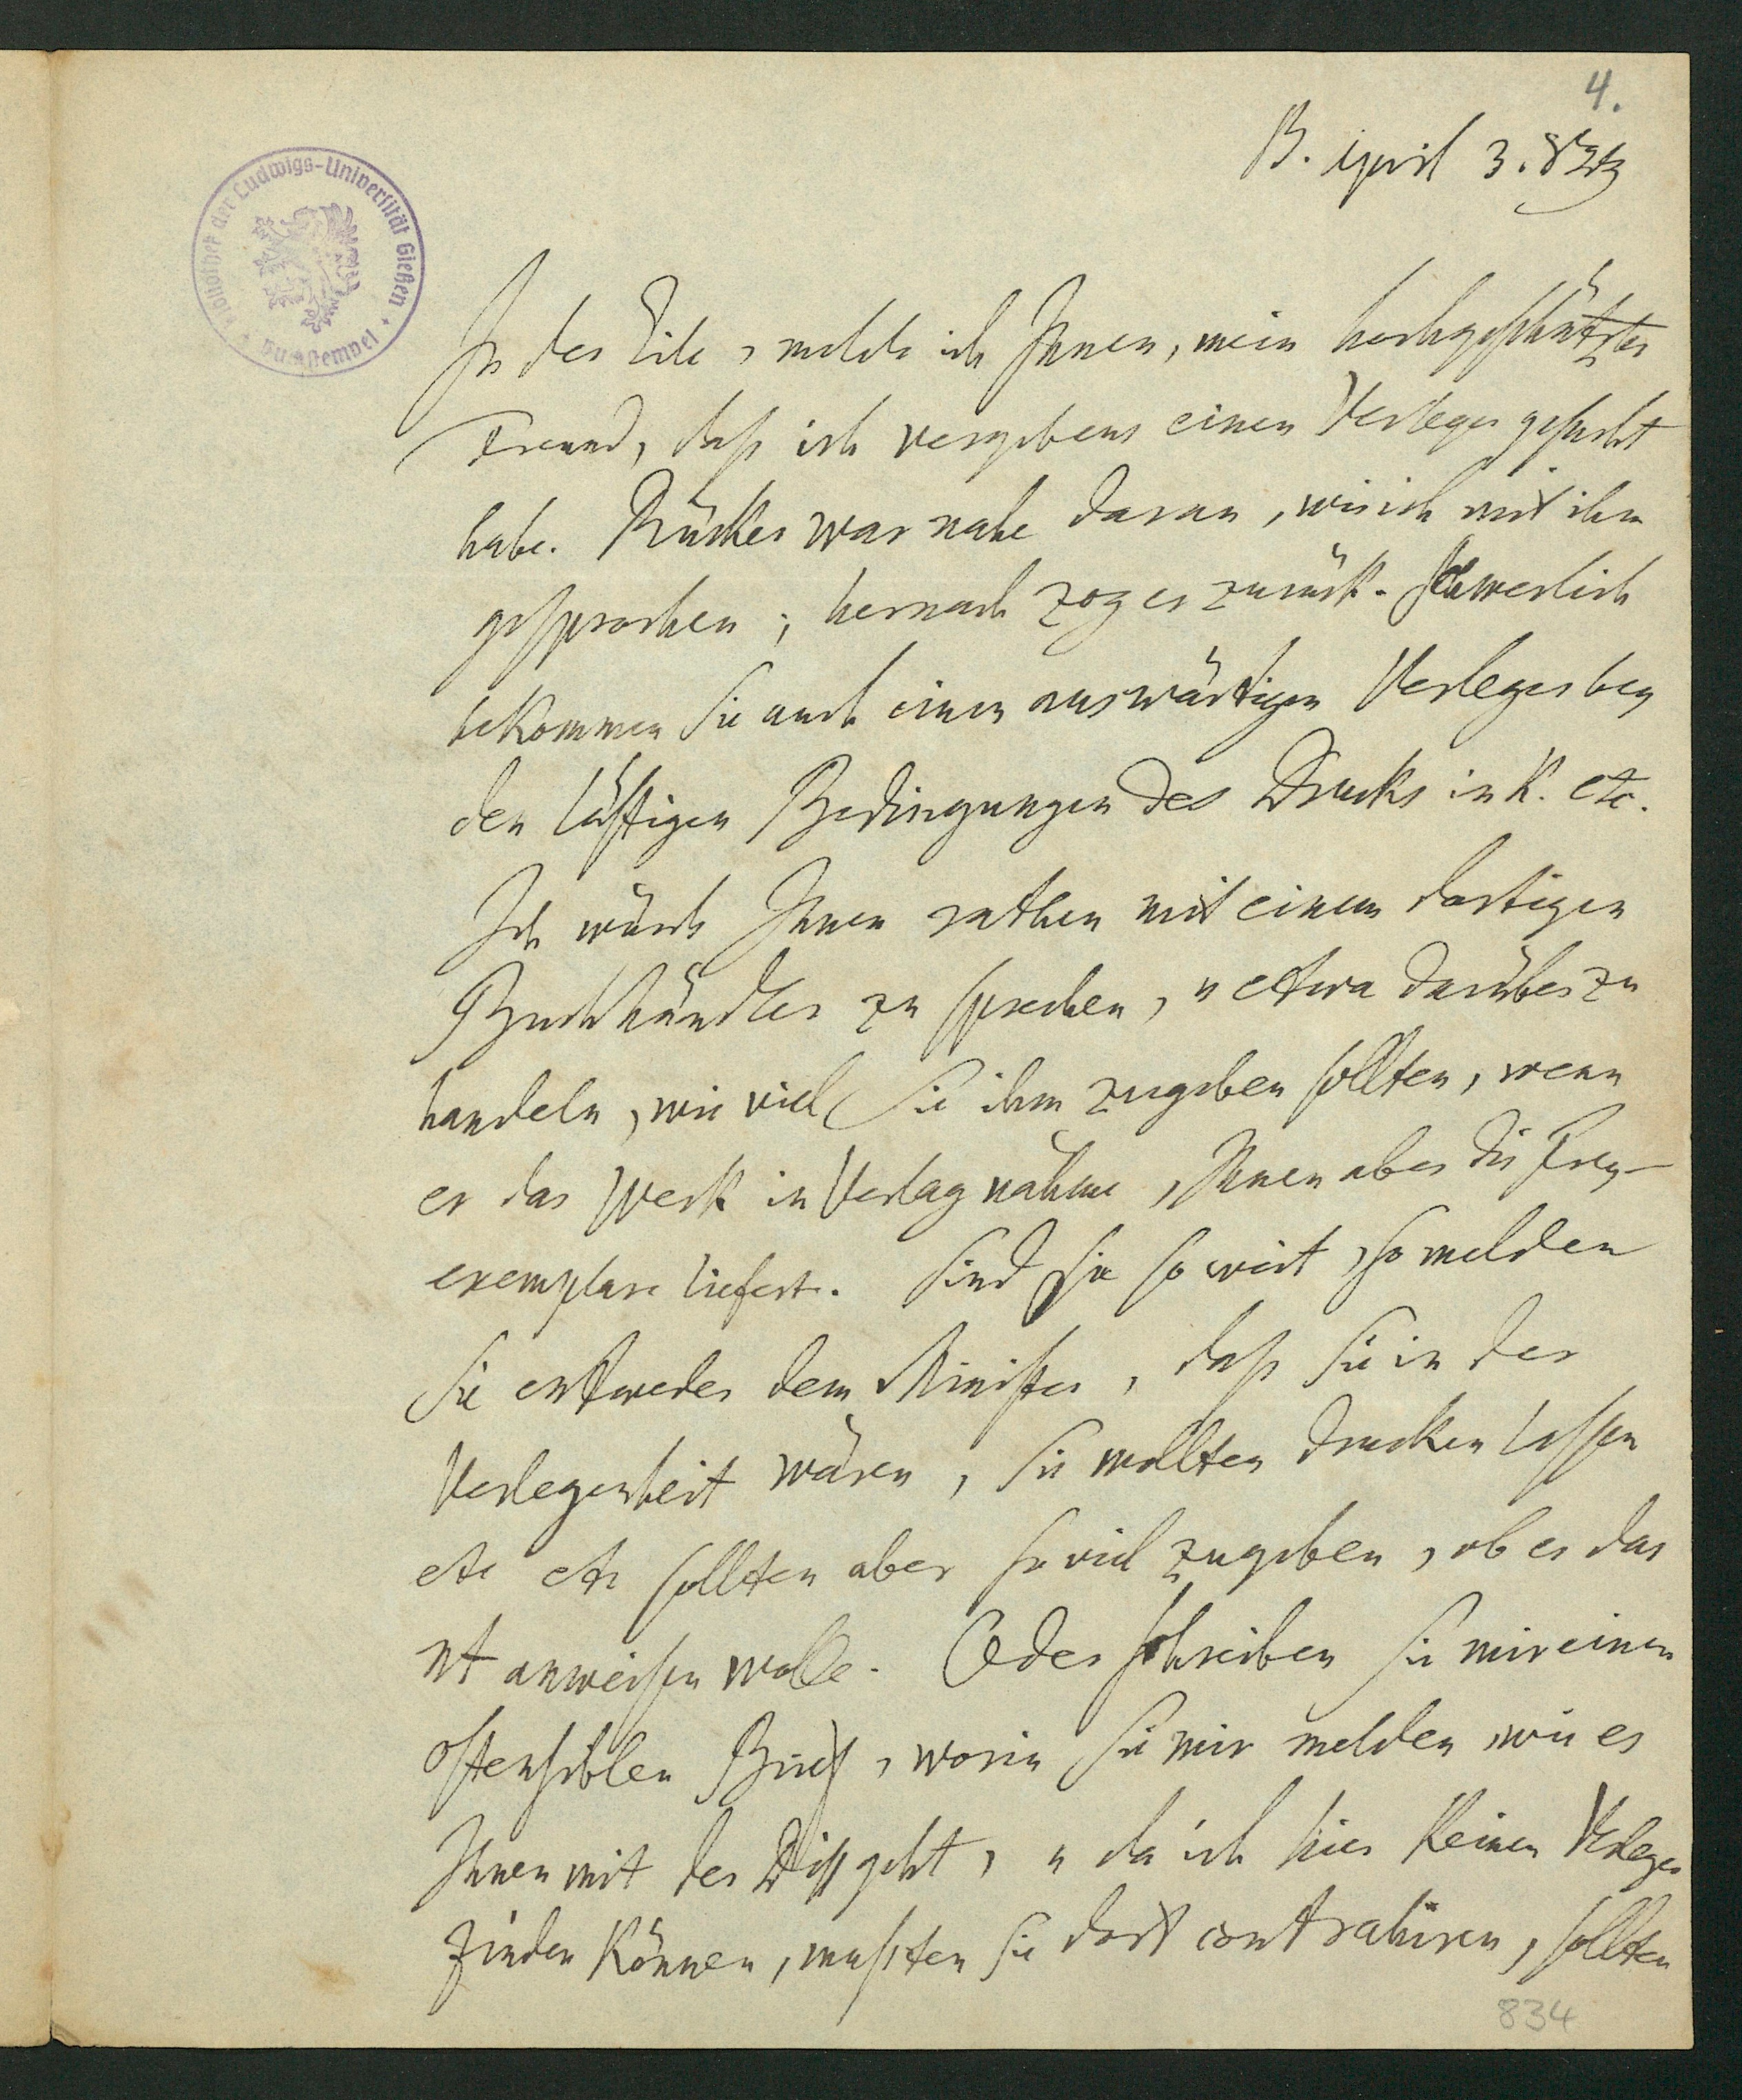 4.
B. April 3. 823
Bibliothek der Ludwigs-Universität Gießen
In der Eile, melde ich Ihnen, mein hochgeschätzter
Freund, daß ich vergebens einen Verleger gesucht
habe. Rücker war nahe daran, wie ich mit ihm
gesprochen; hernach zog er zurück. Schwerlich
bekommen Sie auch einen auswärtigen Verleger bey
den lästigen Bedingungen des Drucks in K. etc.
Ich würde Ihnen rathen mit einem dortigen
Buchhändler zu sprechen, u etwa darüber zu
handeln, wie viel Sie ihm zugeben sollten, wenn
er das Werk in Verlag nähme, Ihnen aber die Frey-
exemplare liefert. Sind Sie so weit, so melden
Sie entweder dem Minister, daß Sie in der
Verlegenheit wären, Sie wollten drucken lassen
etc etc sollten aber so viel zugeben, ob er das
nt anweisen wolle. Oder schreiben Sie mir einen
ostensiblen Brief, worin Sie mir melden, wie es
Ihnen mit der Diss geht, u da ich hier keinen Verleger
finden können, mußten Sie dort contrahiren, sollten
834